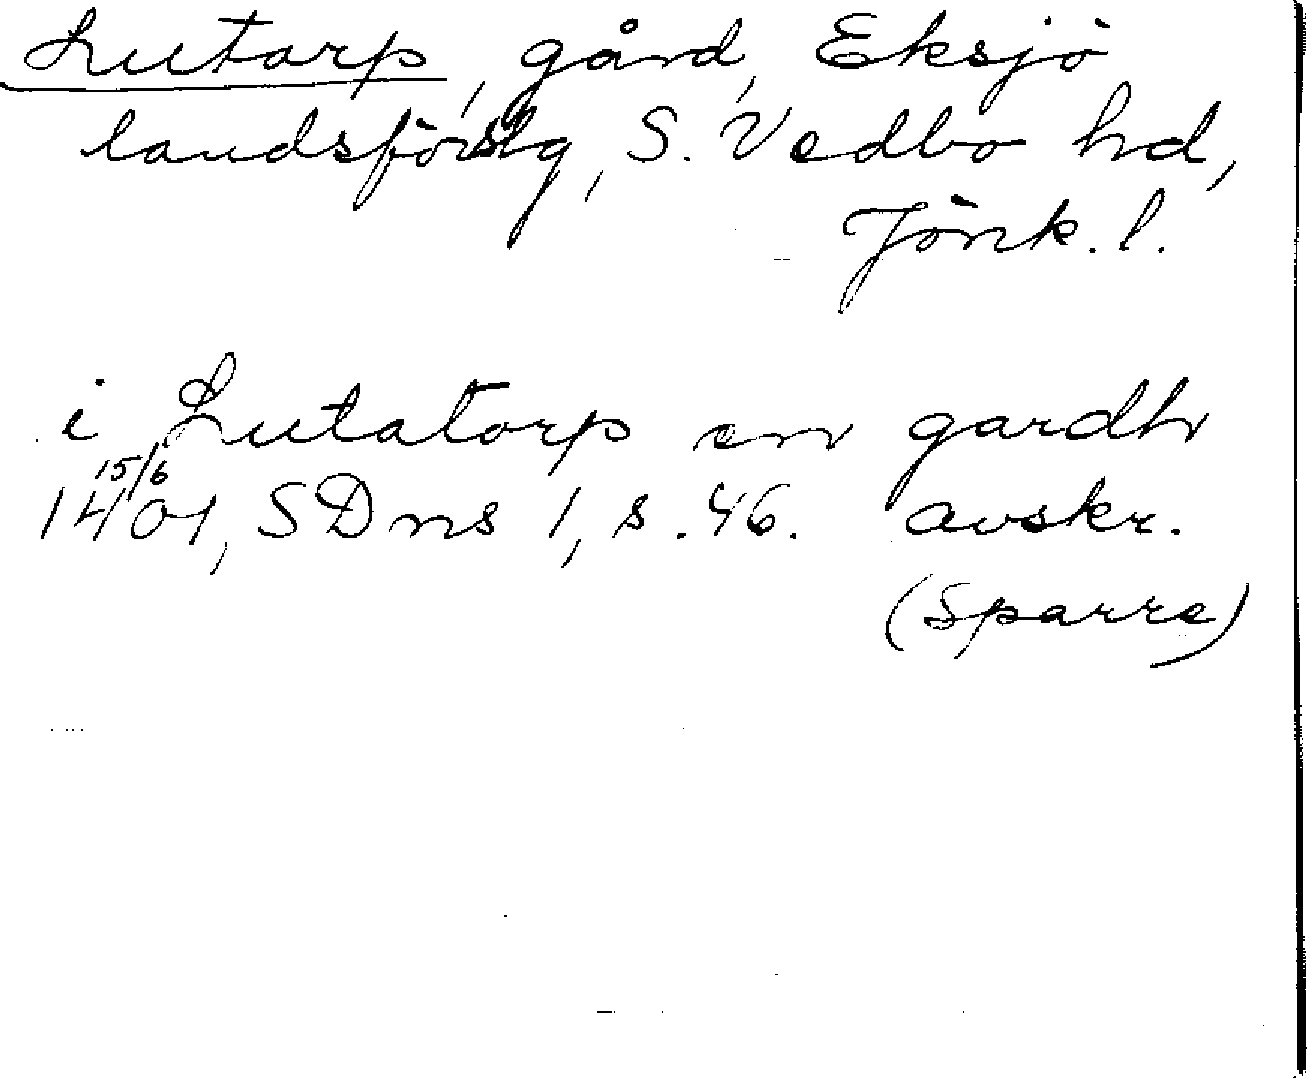 Lutarp, gård, Eksjö
landsförslg, S. Vedbo hd,
Jönk. l.
i Lutatorp en gardh
15/6
1401, SDns 1, s. 46. avskr.
(Sparre)